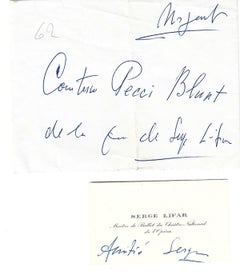 62
Urgent
Comtesse Pecci Blunt
de la part de Serge Lifar
SERGE LIFAR
Maître de Ballet du Théâtre National
de l'Opéra
Amitié Serge